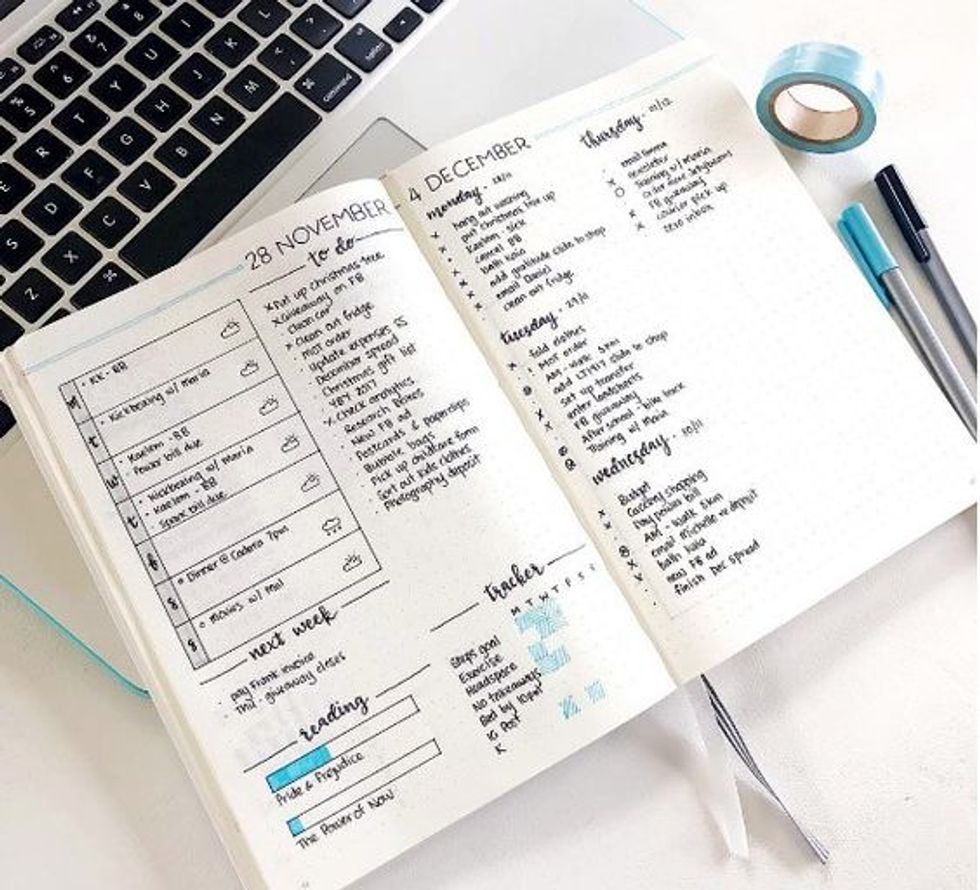 28 NOVEMBER - 4 DECEMBER
M
• KK - BB
t
• Kickboxing w/ maria
w
• Kaelem - BB
• Power bill due
t
• Kickboxing w/ maria
• Kaelem - BB
• Spark bill due
f
s
Dinner @ Cadera 7pm
s
movies w/ mal
to do
x Put up christmas tree
x Giveaway on FB
• Clean car
x Clean out fridge
• MOT order
• Update expenses SS
• December spread
• Christmas gift list
• YBY 2017
x Check analytics
• Research boxes
• New FB ad
• Postcards & paperclips
• Bubble bags
• Pick up childcare form
• Sort out kids clothes
• Photography deposit
next week
• pay Frank invoice
• Thu - giveaway closes
reading
Pride & Prejudice
The Power of Now
tracker
M T W T F S S
Steps goal
Exercise
Headspace
No takeaways
Bed by 10pm
IG Post
K
monday - 28/11
x hang out washing
put christmas tree up
x Kaelem - sick
x cancel BB
bath Kaia
x add gratitude slide to shop
x email Daniel
x clean out fridge
tuesday - 29/11
x fold clothes
MOT order
AM - walk 5km
set up transfer
enter timesheets
FB giveaway
After school - bike track
Training w/ Maria
wednesday - 30/11
x Budget
x Grocery shopping
Pay power bill
AM - walk 5km
email Michelle re deposit
x bath Kaia
x new FB ad
• finish Dec spread
thursday - 01/12
newsletter
Training w/ Maria
FB giveaway
x courier pick up
x zero inbox
Z X C V B N M
S D F G H J K L
R T Y U I
5 6 7 8
command
option